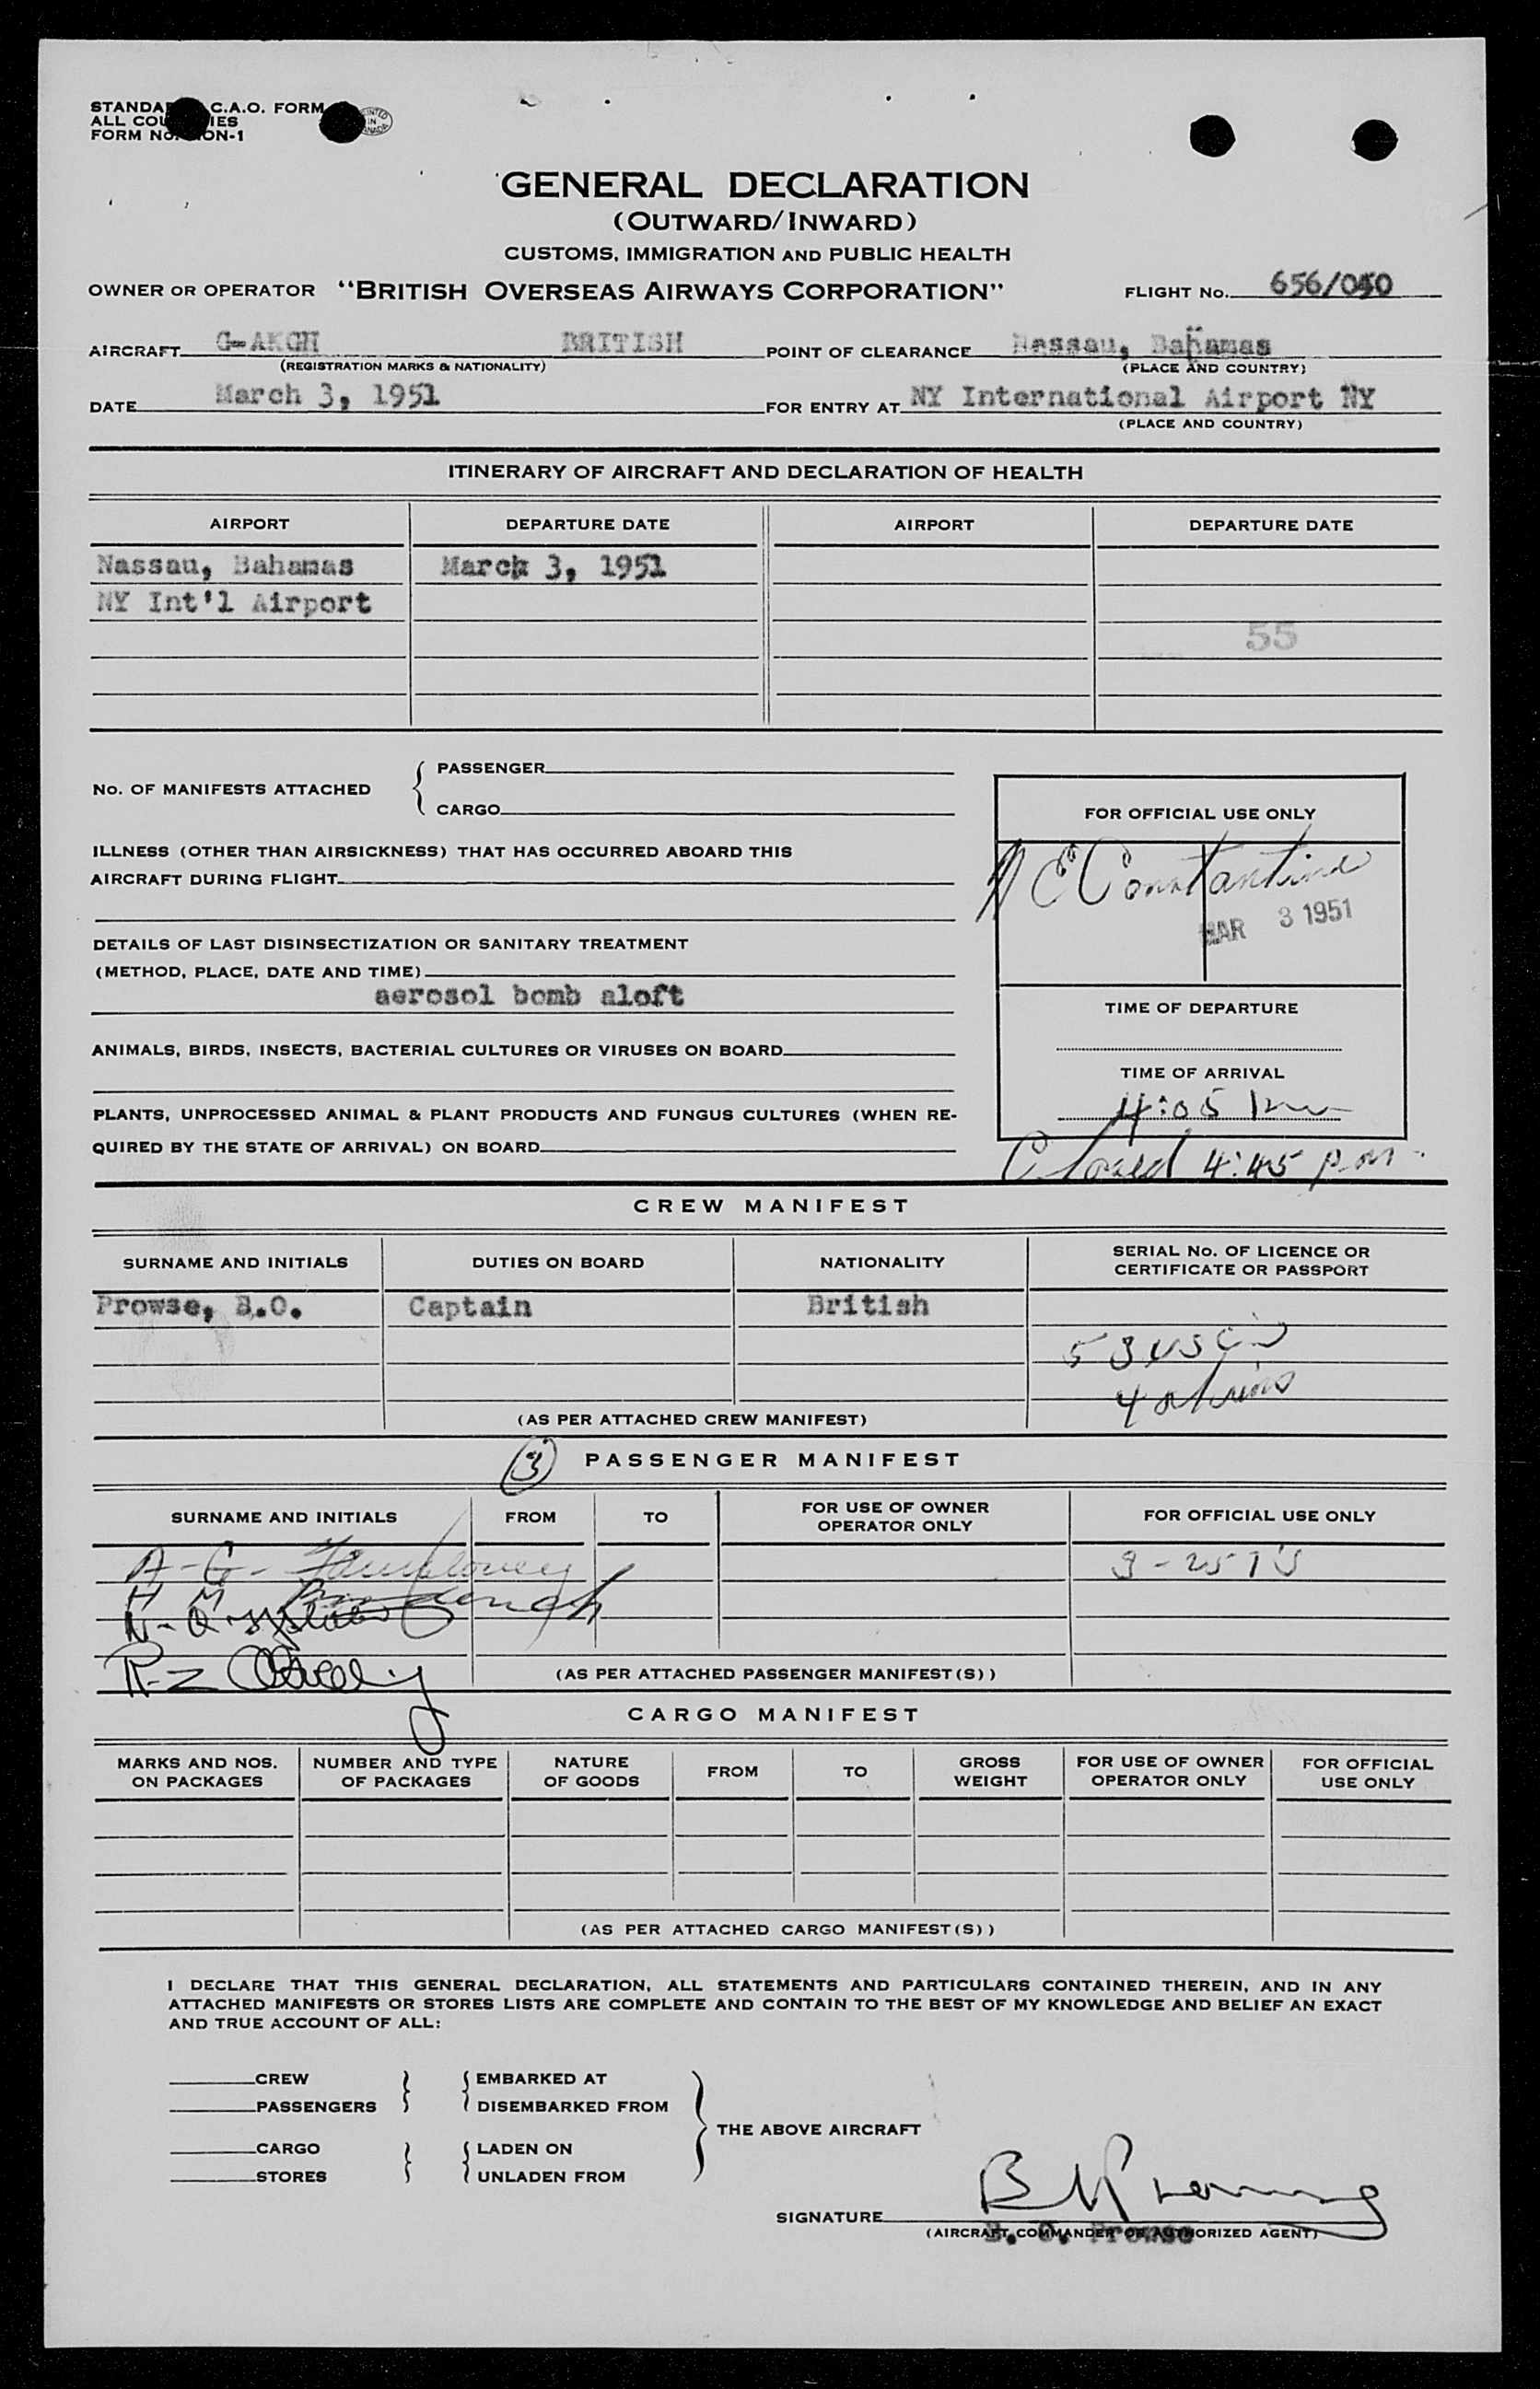 C.A.O. FORM
ALL
FORM No. ON-1
GENERAL DECLARATION
(OUTWARD/INWARD)
CUSTOMS, IMMIGRATION AND PUBLIC HEALTH
OWNER OR OPERATOR "BRITISH OVERSEAS AIRWAYS CORPORATION" FLIGHT No.
AIRCRAFT G-AKGH BRITISH POINT OF CLEARANCE Nassau, Bahamas
(REGISTRATION MARKS & NATIONALITY) (PLACE AND COUNTRY)
DATE March 3, 1951 FOR ENTRY AT NY International Airport NY
(PLACE AND COUNTRY)
ITINERARY OF AIRCRAFT AND DECLARATION OF HEALTH
AIRPORT DEPARTURE DATE AIRPORT DEPARTURE DATE
Nassau, Bahamas March 3, 1951
NY Int'l Airport
55
No. OF MANIFESTS ATTACHED { PASSENGER
CARGO
FOR OFFICIAL USE ONLY
ILLNESS (OTHER THAN AIRSICKNESS) THAT HAS OCCURRED ABOARD THIS
AIRCRAFT DURING FLIGHT
Constantine
MAR 3 1951
DETAILS OF LAST DISINSECTIZATION OR SANITARY TREATMENT
(METHOD, PLACE, DATE AND TIME)
aerosol bomb aloft
TIME OF DEPARTURE
ANIMALS, BIRDS, INSECTS, BACTERIAL CULTURES OR VIRUSES ON BOARD
TIME OF ARRIVAL
4:05 pm
PLANTS, UNPROCESSED ANIMAL & PLANT PRODUCTS AND FUNGUS CULTURES (WHEN RE-
QUIRED BY THE STATE OF ARRIVAL) ON BOARD
Closed 4:45 p.m.
CREW MANIFEST
SURNAME AND INITIALS DUTIES ON BOARD NATIONALITY SERIAL No. OF LICENCE OR
CERTIFICATE OR PASSPORT
Prowse, B.O. Captain British
53 USC
4 aliens
(AS PER ATTACHED CREW MANIFEST)
(3) PASSENGER MANIFEST
SURNAME AND INITIALS FROM TO FOR USE OF OWNER
OPERATOR ONLY FOR OFFICIAL USE ONLY
A-G-
H M
(AS PER ATTACHED PASSENGER MANIFEST(S))
CARGO MANIFEST
MARKS AND NOS.
ON PACKAGES NUMBER AND TYPE
OF PACKAGES NATURE
OF GOODS FROM TO GROSS
WEIGHT FOR USE OF OWNER
OPERATOR ONLY FOR OFFICIAL
USE ONLY
(AS PER ATTACHED CARGO MANIFEST(S))
I DECLARE THAT THIS GENERAL DECLARATION, ALL STATEMENTS AND PARTICULARS CONTAINED THEREIN, AND IN ANY
ATTACHED MANIFESTS OR STORES LISTS ARE COMPLETE AND CONTAIN TO THE BEST OF MY KNOWLEDGE AND BELIEF AN EXACT
AND TRUE ACCOUNT OF ALL:
CREW EMBARKED AT
PASSENGERS DISEMBARKED FROM
THE ABOVE AIRCRAFT
CARGO LADEN ON
STORES UNLADEN FROM
SIGNATURE
(AIRCRAFT COMMANDER OR AUTHORIZED AGENT)
B. O. Prowse